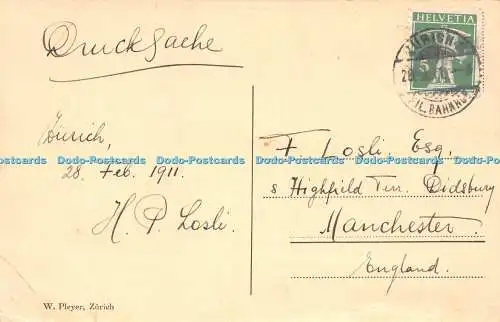 Drucksache
HELVETIA
5
ZÜRICH
FIL. BAHNHOF
Zürich,
28. Feb. 1911.
H. P. Losli.
F. Losli, Esq.
Highfield Terr. Didsbury
Manchester.
England.
W. Pleyer, Zürich
Dodo-Postcards Dodo-Postcards Dodo-Postcards Dodo-Postcards Dodo-Postcards Dodo-Postcards